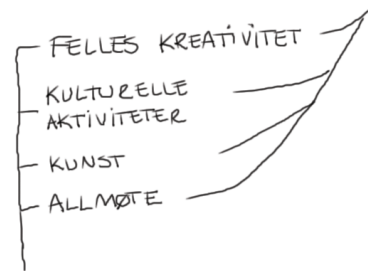 FELLES KREATIVITET
KULTURELLE
AKTIVITETER
KUNST
ALLMØTE